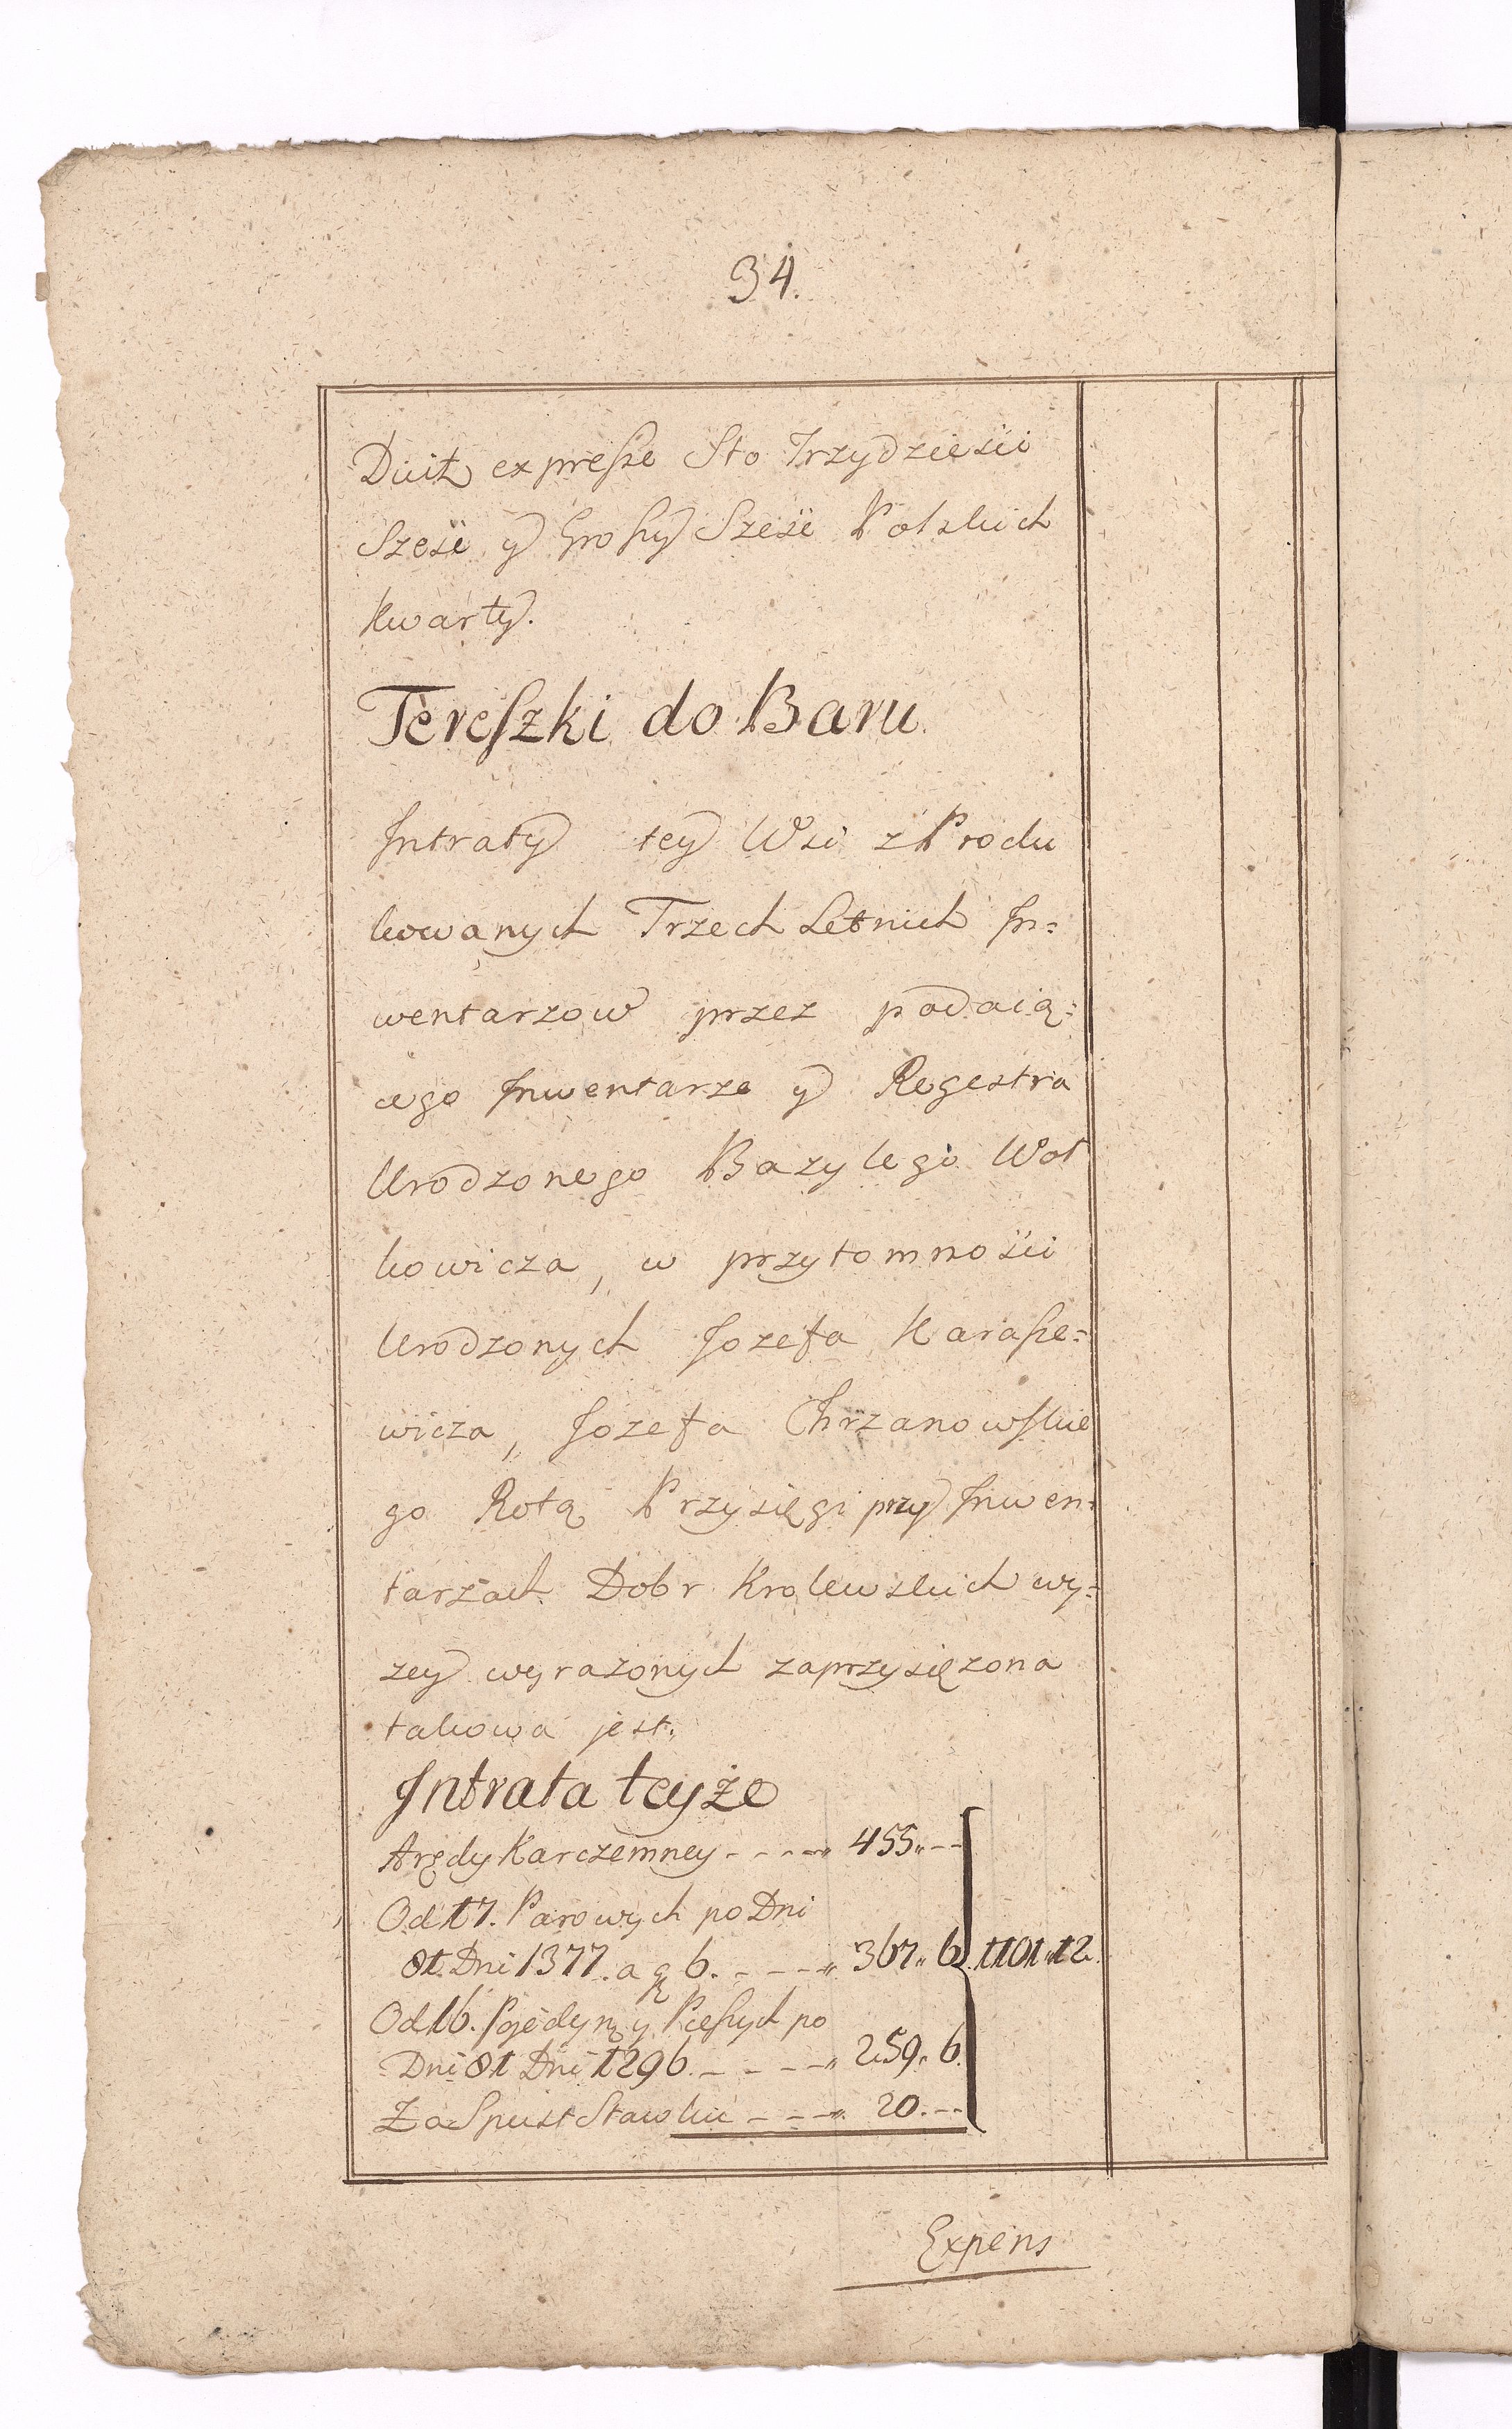 34.
Dicit expresse Sto Trzydzieści
Sześć y Groszy Sześć Polskich
Kwarty.
Tereszki do Baru.
Intraty tey Wsi z Produ
kowanych Trzech Letnich In=
wentarzow przez podaią=
cego Inwentarze y Regestra
Urodzonego Bazylego Woł
kowicza, w przytomności
Urodzonych Jozefa Karasze=
wicza, Jozefa Chrzanowskie
go Rotą Przysięgi przy Inwen=
tarzach Dobr Krolewskich wy=
zey wyrazonych zaprzysięzona
takowa jest.
Intrata teyże
Arędy Karczemney - - - - „ 455 „ - -
Od 17. Parowych po Dni
81. Dni 1377. a g 6. - - - - „ 367 „ 6. 1101 „ 12.
Od 16. Pojedyn y Pieszych po
Dni 81 Dni 1296. - - - - „ 259 „ 6.
Za Spust Stawku - - - - „ 20. - -
Expens